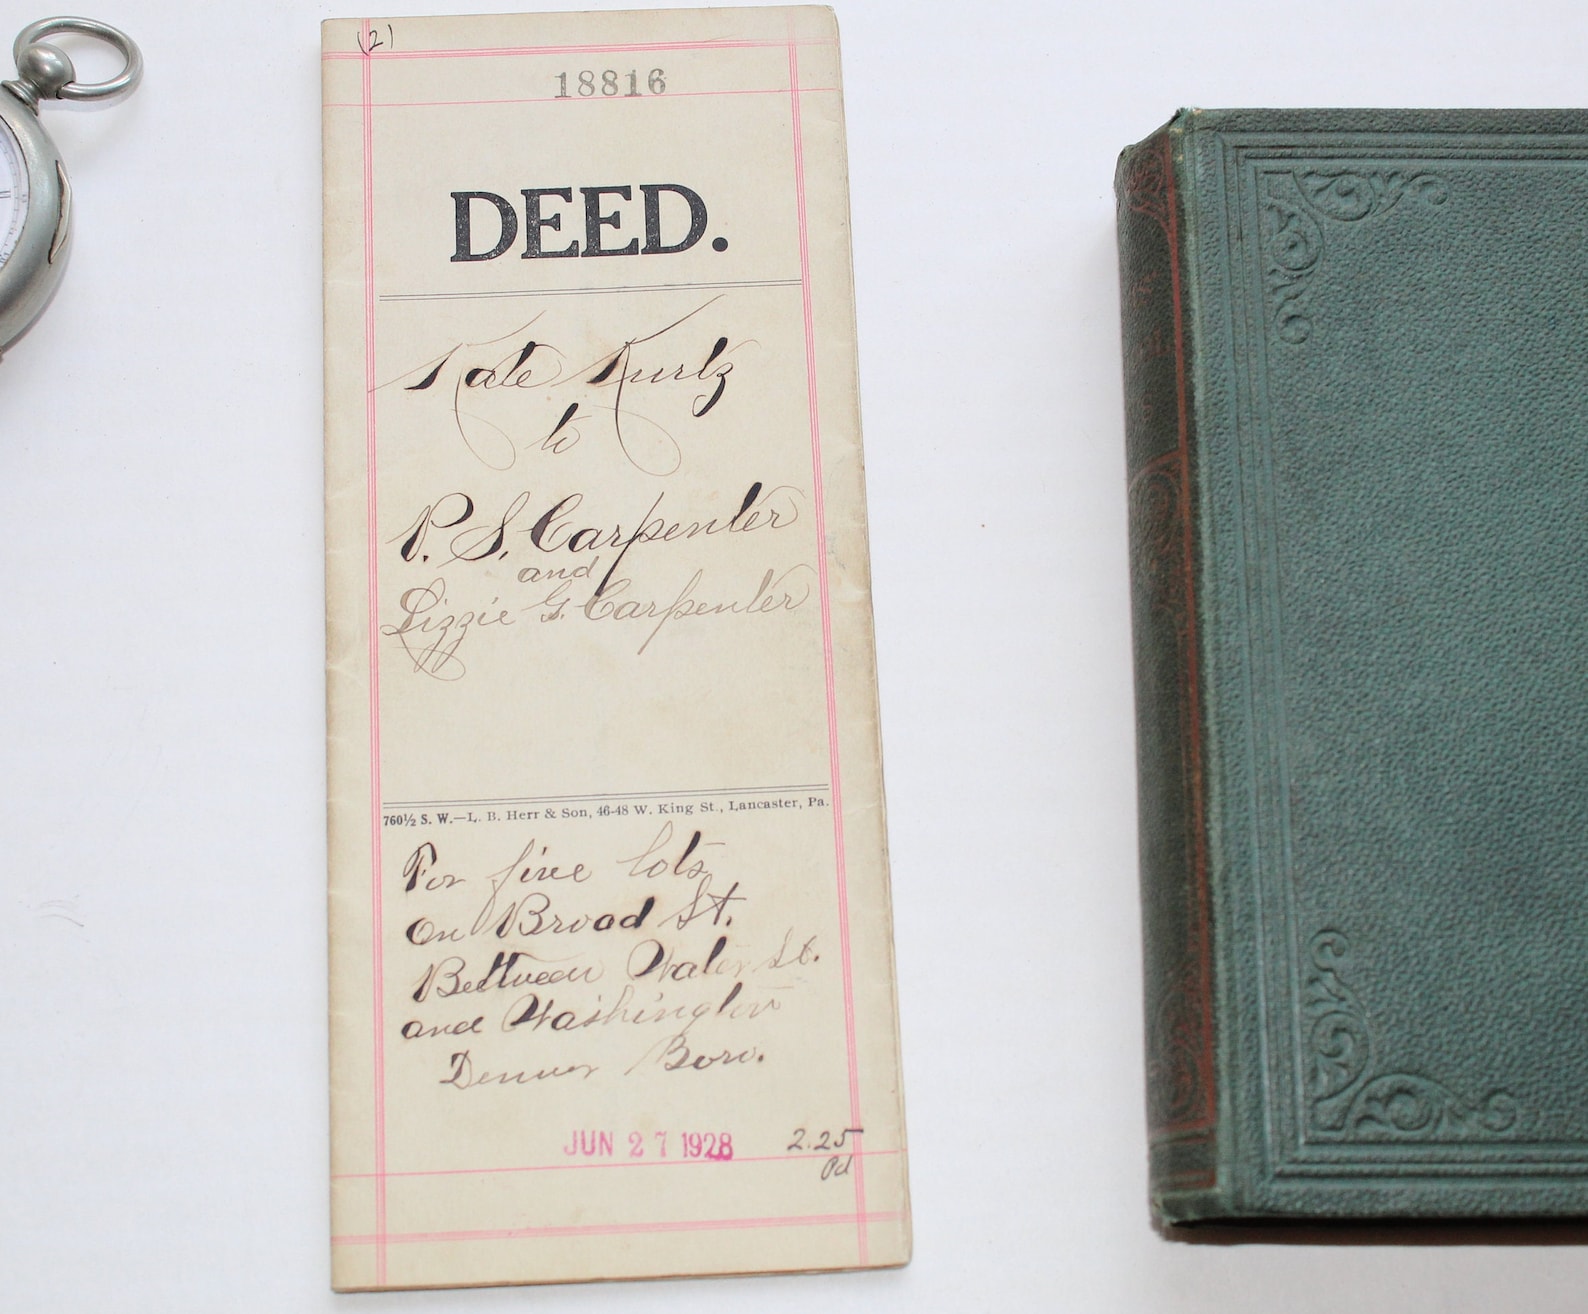 (2)
18816
DEED.
Kate Kurtz
to
P. S. Carpenter
and
Lizzie G. Carpenter
760½ S. W.—L. B. Herr & Son, 46-48 W. King St., Lancaster, Pa.
For five lots
on Broad St.
Bettween Water St.
and Washington
Denver Boro.
JUN 27 1928
2.25
Pd